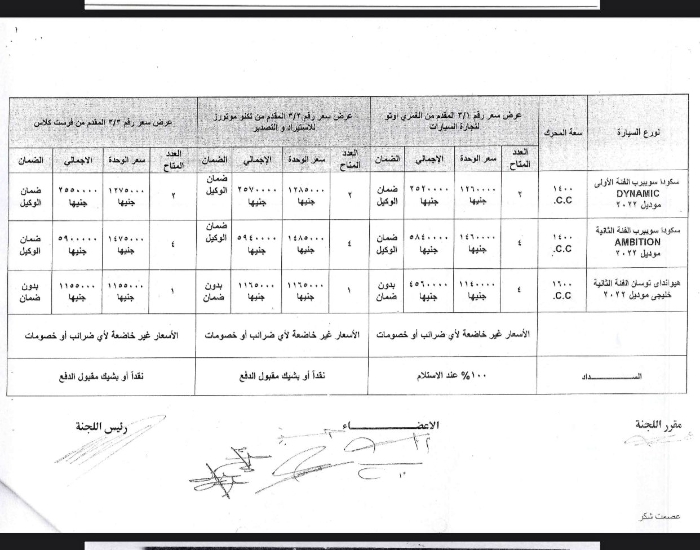 ١
نوع السيارة
سعة المحرك
عرض سعر رقم ٣/١ المقدم من القمري اوتو
لتجارة السيارات
عرض سعر رقم ٣/٢ المقدم من تكنو موتورز
للاستيراد و التصدير
عرض سعر رقم ٣/٣ المقدم من فرست كلاس
العدد المتاح سعر الوحدة الاجمالي الضمان العدد المتاح سعر الوحدة الاجمالي الضمان العدد المتاح سعر الوحدة الإجمالي الضمان
سكودا سوبيرب الفئة الأولى
DYNAMIC
موديل ٢٠٢٢
١٤٠٠
C.C.
٢ ١٢٦٠٠٠٠ جنيها ٢٥٢٠٠٠٠ جنيها ضمان الوكيل
٢ ١٢٨٥٠٠٠ جنيها ٢٥٧٠٠٠٠ جنيها ضمان الوكيل
٢ ١٢٧٥٠٠٠ جنيها ٢٥٥٠٠٠٠ جنيها ضمان الوكيل
سكودا سوبيرب الفئة الثانية
AMBITION
موديل ٢٠٢٢
١٤٠٠
C.C.
٤ ١٤٦٠٠٠٠ جنيها ٥٨٤٠٠٠٠ جنيها ضمان الوكيل
٤ ١٤٨٥٠٠٠ جنيها ٥٩٤٠٠٠٠ جنيها ضمان الوكيل
٤ ١٤٧٥٠٠٠ جنيها ٥٩٠٠٠٠٠ جنيها ضمان الوكيل
هيونداى توسان الفئة الثانية
خليجى موديل ٢٠٢٢
١٦٠٠
C.C.
٤ ١١٤٠٠٠٠ جنيها ٤٥٦٠٠٠٠ جنيها بدون ضمان
١ ١١٦٥٠٠٠ جنيها ١١٦٥٠٠٠ جنيها بدون ضمان
١ ١١٥٥٠٠٠ جنيها ١١٥٥٠٠٠ جنيها بدون ضمان
الأسعار غير خاضعة لأي ضرائب أو خصومات
الأسعار غير خاضعة لأي ضرائب أو خصومات
الأسعار غير خاضعة لأي ضرائب أو خصومات
الســـــــــداد
١٠٠% عند الاستلام
نقداً أو بشيك مقبول الدفع
نقداً أو بشيك مقبول الدفع
مقرر اللجنة
الاعضـــــاء
رئيس اللجنة
عصمت شكر